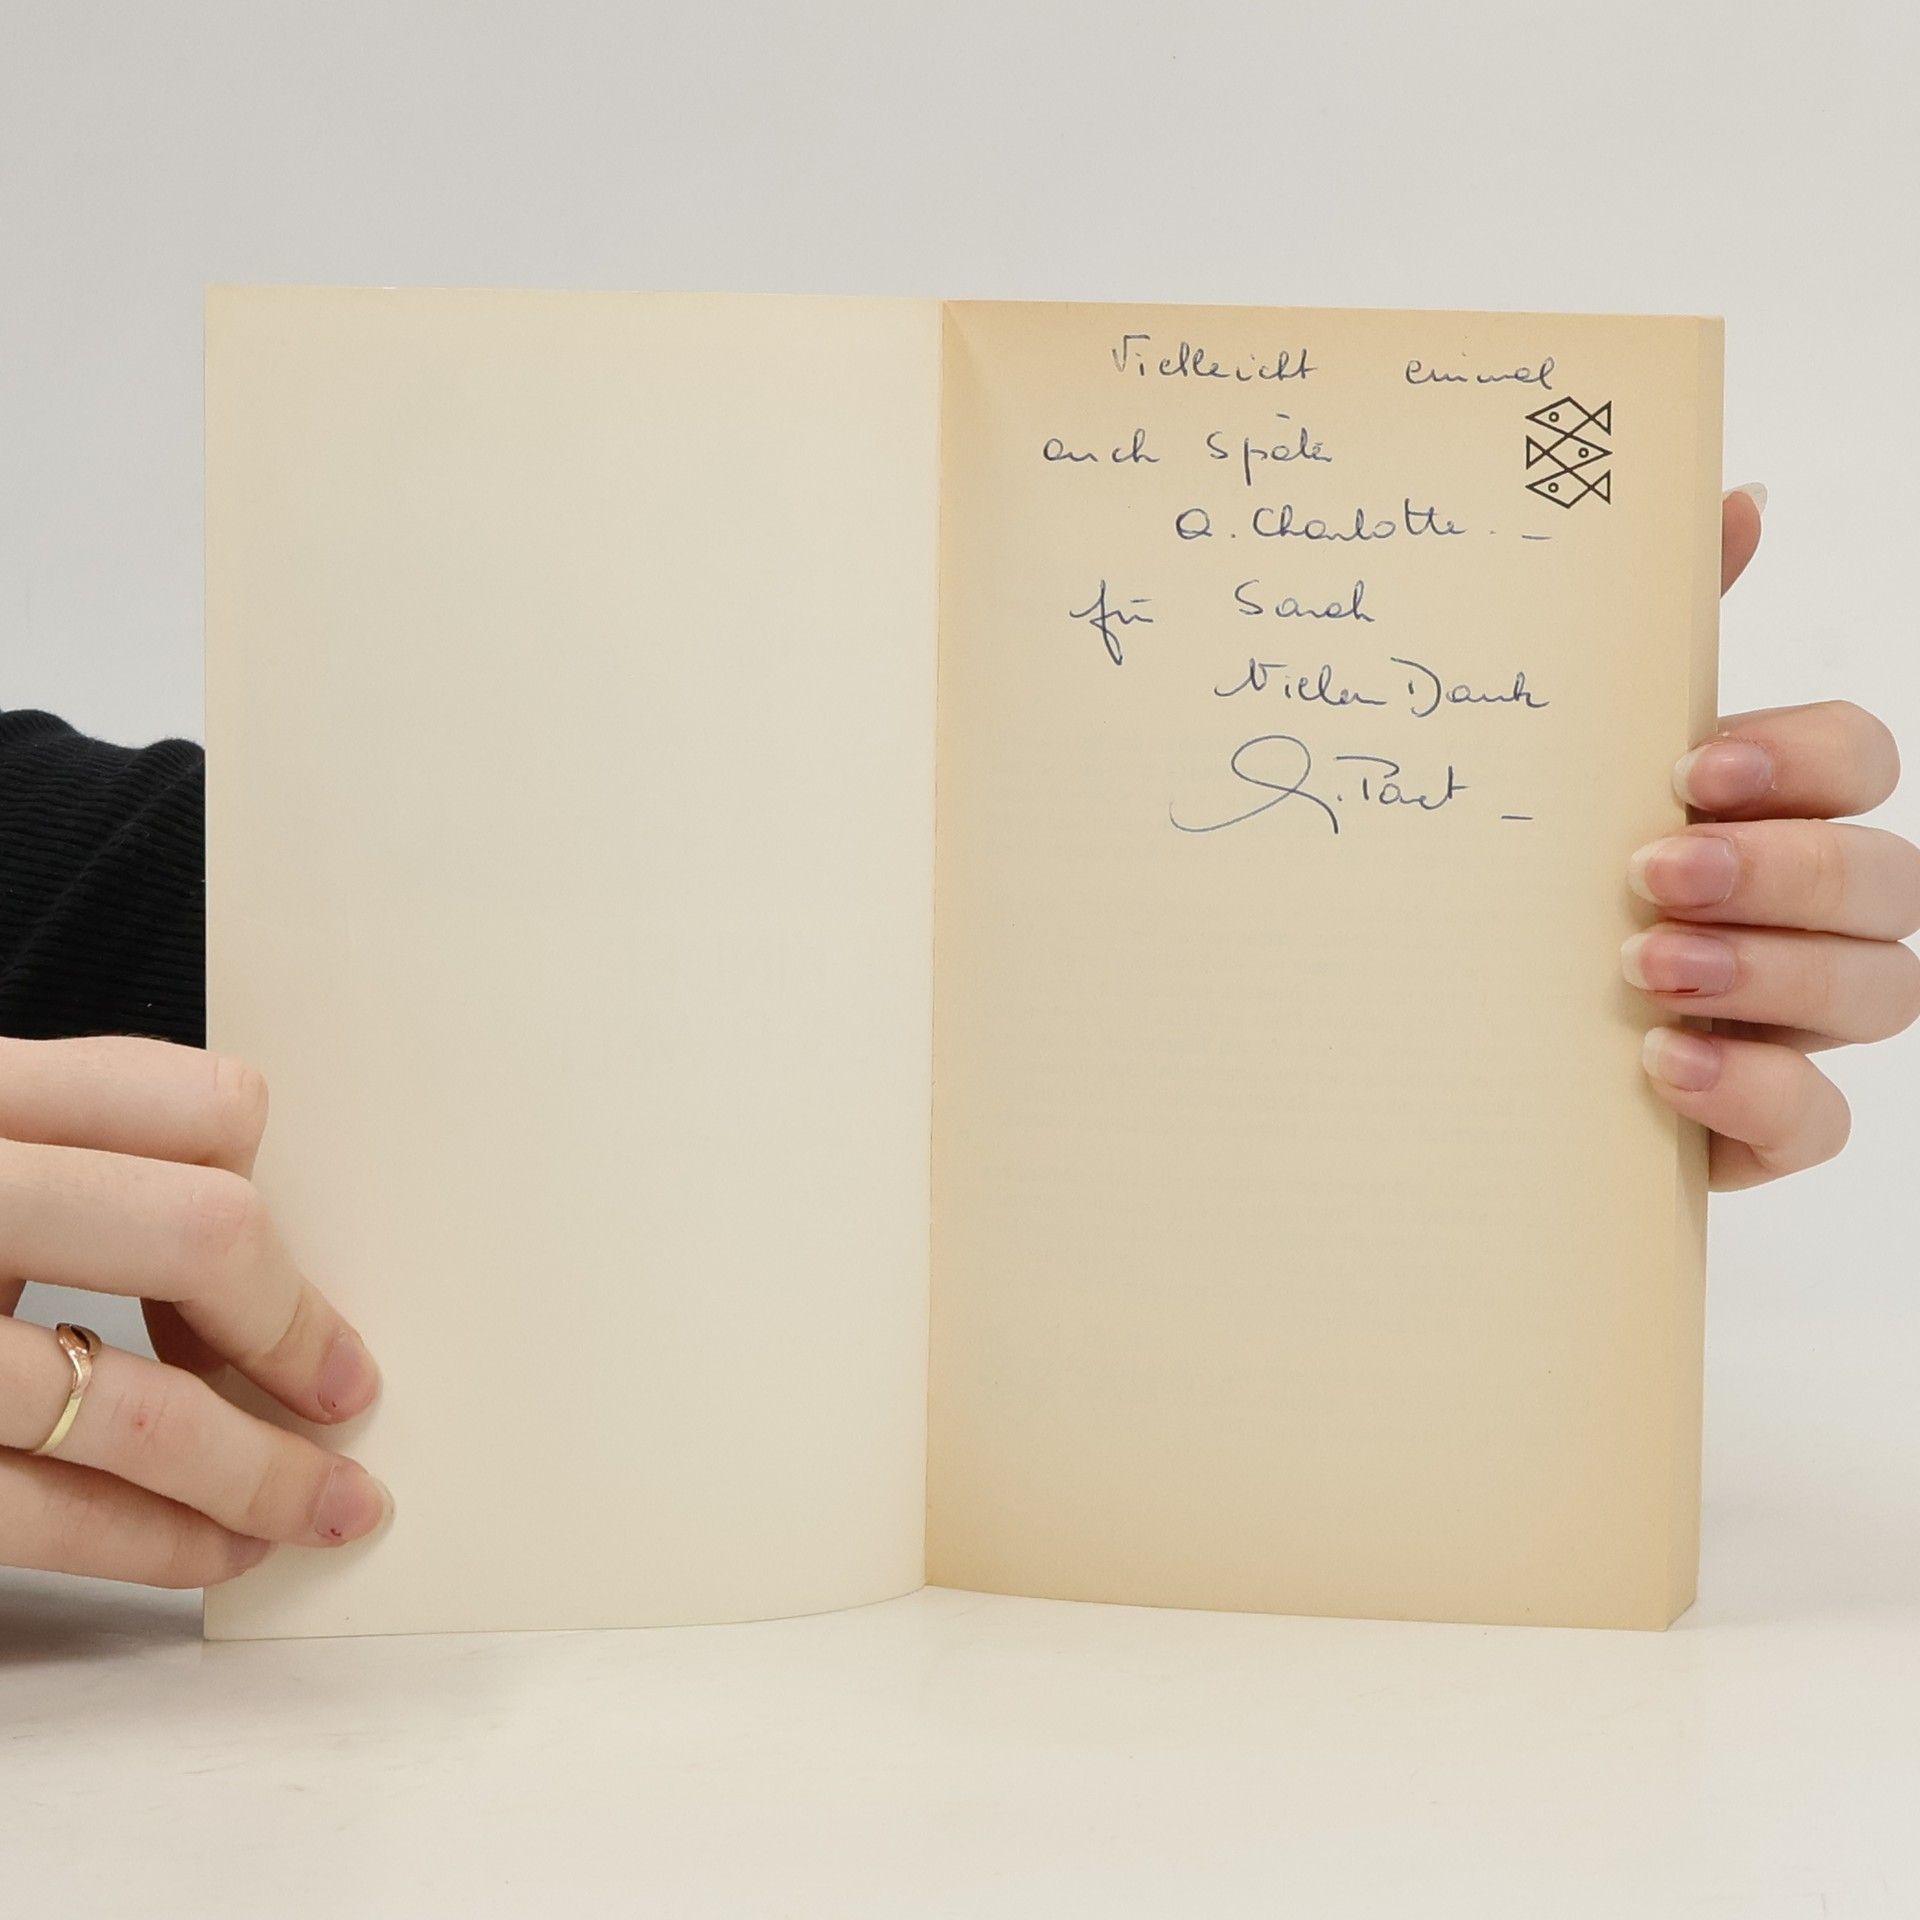 Vielleicht einmal
auch später
a. Charlotte. –
für Sarah
Vielen Dank